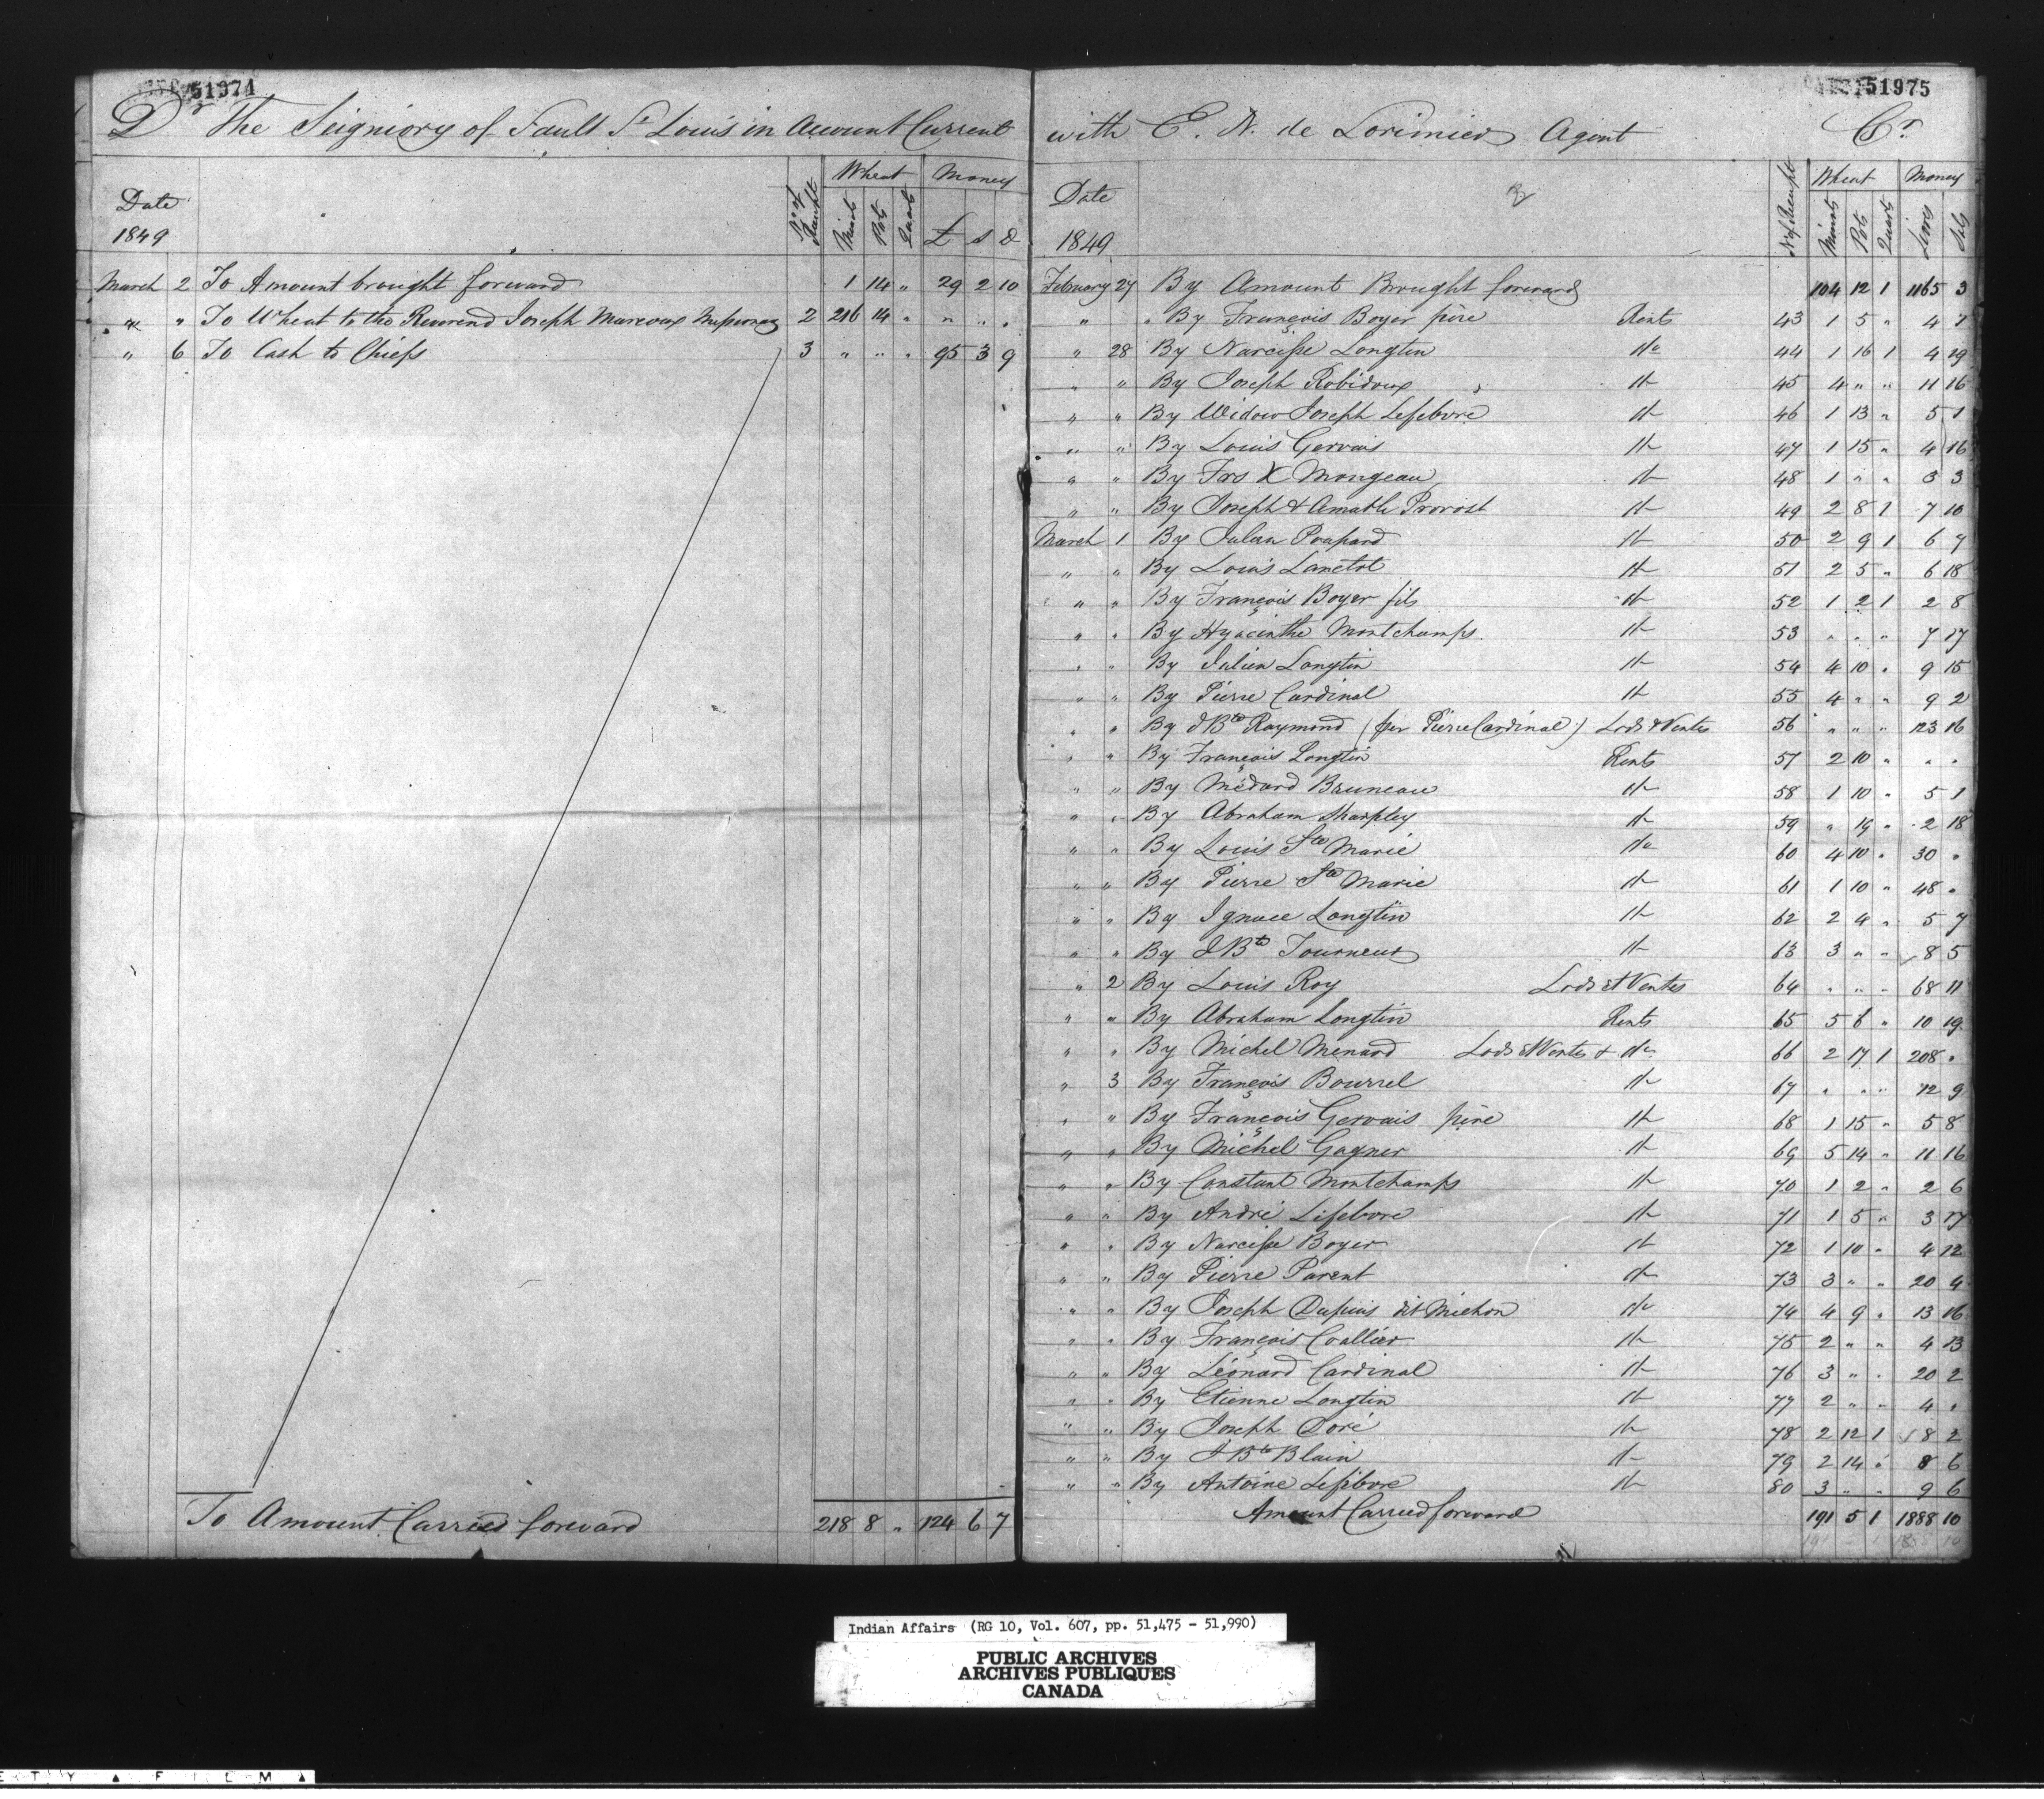 51974
Dr The Seigniory of Sault St Louis in Account Current
Date 1849 No of Receipt Wheat Minots Pots Quarts Money £ s d
March 2 To Amount brought forward 1 14 " 29 2 10
" " To Wheat to the Reverend Joseph Marcoux Missionary 2 216 14 " " " "
" 6 To Cash to Chiefs 3 " " " 95 3 9
To Amount Carried forward 218 8 " 124 6 7
51975
with E. N. de Lorimier Agent Cr
Date 1849 By No of Receipt Wheat Minots Pots Quarts Money Livres Sols
February 27 By Amount Brought forward 104 12 1 1165 3
" " By François Boyer père Rents 43 1 5 " 4 7
" 28 By Narcisse Longtin do 44 1 16 1 4 19
" " By Joseph Robidoux do 45 4 " " 11 16
" " By Widow Joseph Lefebvre do 46 1 13 " 5 1
" " By Louis Gervais do 47 1 15 " 4 16
" " By Frs X Mongeau do 48 1 " " 3 3
" " By Joseph & Amable Provost do 49 2 8 1 7 10
March 1 By Julien Poupard do 50 2 9 1 6 7
" " By Louis Lanctot do 51 2 5 " 6 18
" " By François Boyer fils do 52 1 2 1 2 8
" " By Hyacinthe Montchamps do 53 " " " 7 17
" " By Julien Longtin do 54 4 10 " 9 15
" " By Pierre Cardinal do 55 4 " " 9 2
" " By J Bte Raymond (per Pierre Cardinal) Lods & Ventes 56 " " " 123 16
" " By François Longtin Rents 57 2 10 " " "
" " By Médard Bruneau do 58 1 10 " 5 1
" " By Abraham Sharpley do 59 " 19 " 2 18
" " By Louis Ste Marie do 60 4 10 " 30 "
" " By Pierre Ste Marie do 61 1 10 " 48 "
" " By Ignace Longtin do 62 2 4 " 5 7
" " By J Bte Tourneur do 63 3 " " 8 5
" 2 By Louis Roy Lods et Ventes 64 " " " 68 11
" " By Abraham Longtin Rents 65 5 6 " 10 19
" " By Michel Menard Lods et Ventes & do 66 2 17 1 208 "
" 3 By François Bourrel do 67 " " " 12 9
" " By François Gervais père do 68 1 15 " 5 8
" " By Michel Gagner do 69 5 14 " 11 16
" " By Constant Montchamps do 70 1 2 " 2 6
" " By André Lefebvre do 71 1 5 " 3 17
" " By Narcisse Boyer do 72 1 10 " 4 12
" " By Pierre Parent do 73 3 " " 20 4
" " By Joseph Dupuis dit Michon do 74 4 9 " 13 16
" " By François Coallier do 75 2 " " 4 13
" " By Léonard Cardinal do 76 3 " " 20 2
" " By Etienne Longtin do 77 2 " " 4 "
" " By Joseph Doré do 78 2 12 1 8 2
" " By J Bte Blain do 79 2 14 " 8 6
" " By Antoine Lefebvre do 80 3 " " 9 6
Amount Carried forward 191 5 1 1888 10
Indian Affairs (RG 10, Vol. 607, pp. 51,475 - 51,990)
PUBLIC ARCHIVES
ARCHIVES PUBLIQUES
CANADA
E T Y ▲ F I L M ▲